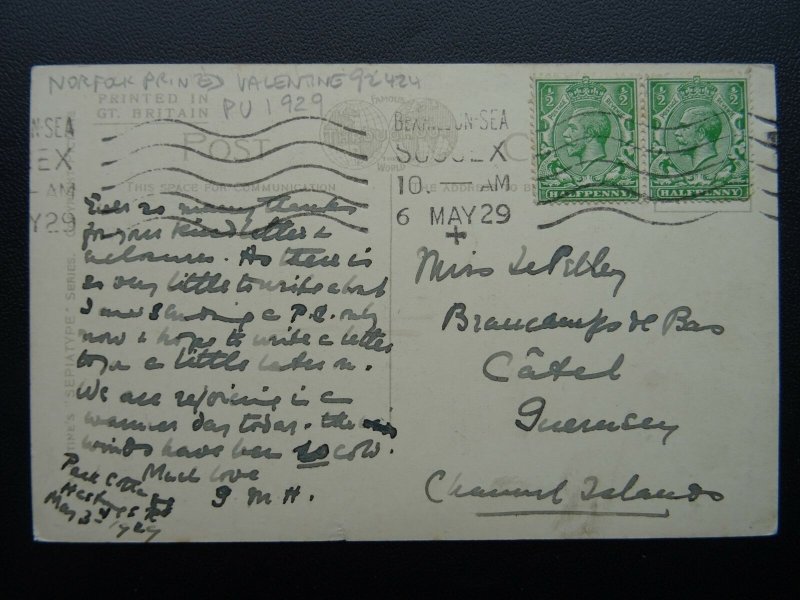 NORFOLK PRINTED VALENTINE 92424
PU 1929
PRINTED IN
GT. BRITAIN
FAMOUS
WORLD
POST
THIS SPACE FOR COMMUNICATION
THE ADDRESS
N-SEA
EX
AM
Y29
BEXHILL-ON-SEA
SUSSEX
10 AM
6 MAY 29
HALFPENNY
HALFPENNY
'SEPIATYPE' SERIES.
Ever so many thanks
for your kind letter &
enclosures. As there is
so very little to write about
I am sending a P.C. only
now & hope to write a letter
to you a little later on.
We are rejoicing in a
warmer day today. the
winds have been so cold.
Much love
I M H.
Park Cottage
Hastings Rd
May 1929
Miss Le Pelley
Beaucamps de Bas
Câtel
Guernsey
Channel Islands